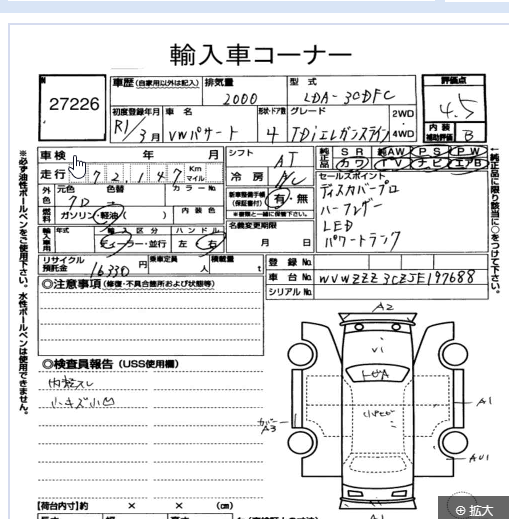 輸入車コーナー
27226
車歴 (自家用以外は記入) 排気量 型式 評価点
2000 LDA-3CDFC 4.5
初度登録年月 車名 形状・ドア数 グレード 2WD 内装
R1/3月 VWパサート 4 TDiエレガンスライン 4WD 補助評価 B
車検 年 月 シフト AT 純正品 SR 純AW PS PW
カワ TV ナビ エアB
走行 72,147 Km マイル 冷房 AC セールスポイント
外色 元色 色替 カラーNo. 新車整備手帳 (保証書付) 有・無 ディスカバープロ
クロ ※書類と一緒に保管下さい。 ハーフレザー
燃料 ガソリン・軽油( ) 内装色 名義変更期限 LED
輸入車用 年式 輸入区分 ハンドル 月 日 パワートランク
ディーラー・並行 左 右
リサイクル預託金 16330円 乗車定員 人 積載量 t 登録No.
車台No. WVWZZZ3CZJE197688
シリアルNo.
◎注意事項 (修復・不具合箇所および状態等)
※必ず油性ボールペンをご使用下さい。水性ボールペンは使用できません。
↑純正品に限り該当に○をつけて下さい。
◎検査員報告 (USS使用欄)
内装スレ
小キズ小凹
A2
A3
A1
【荷台内寸】約 × × (cm)
拡大